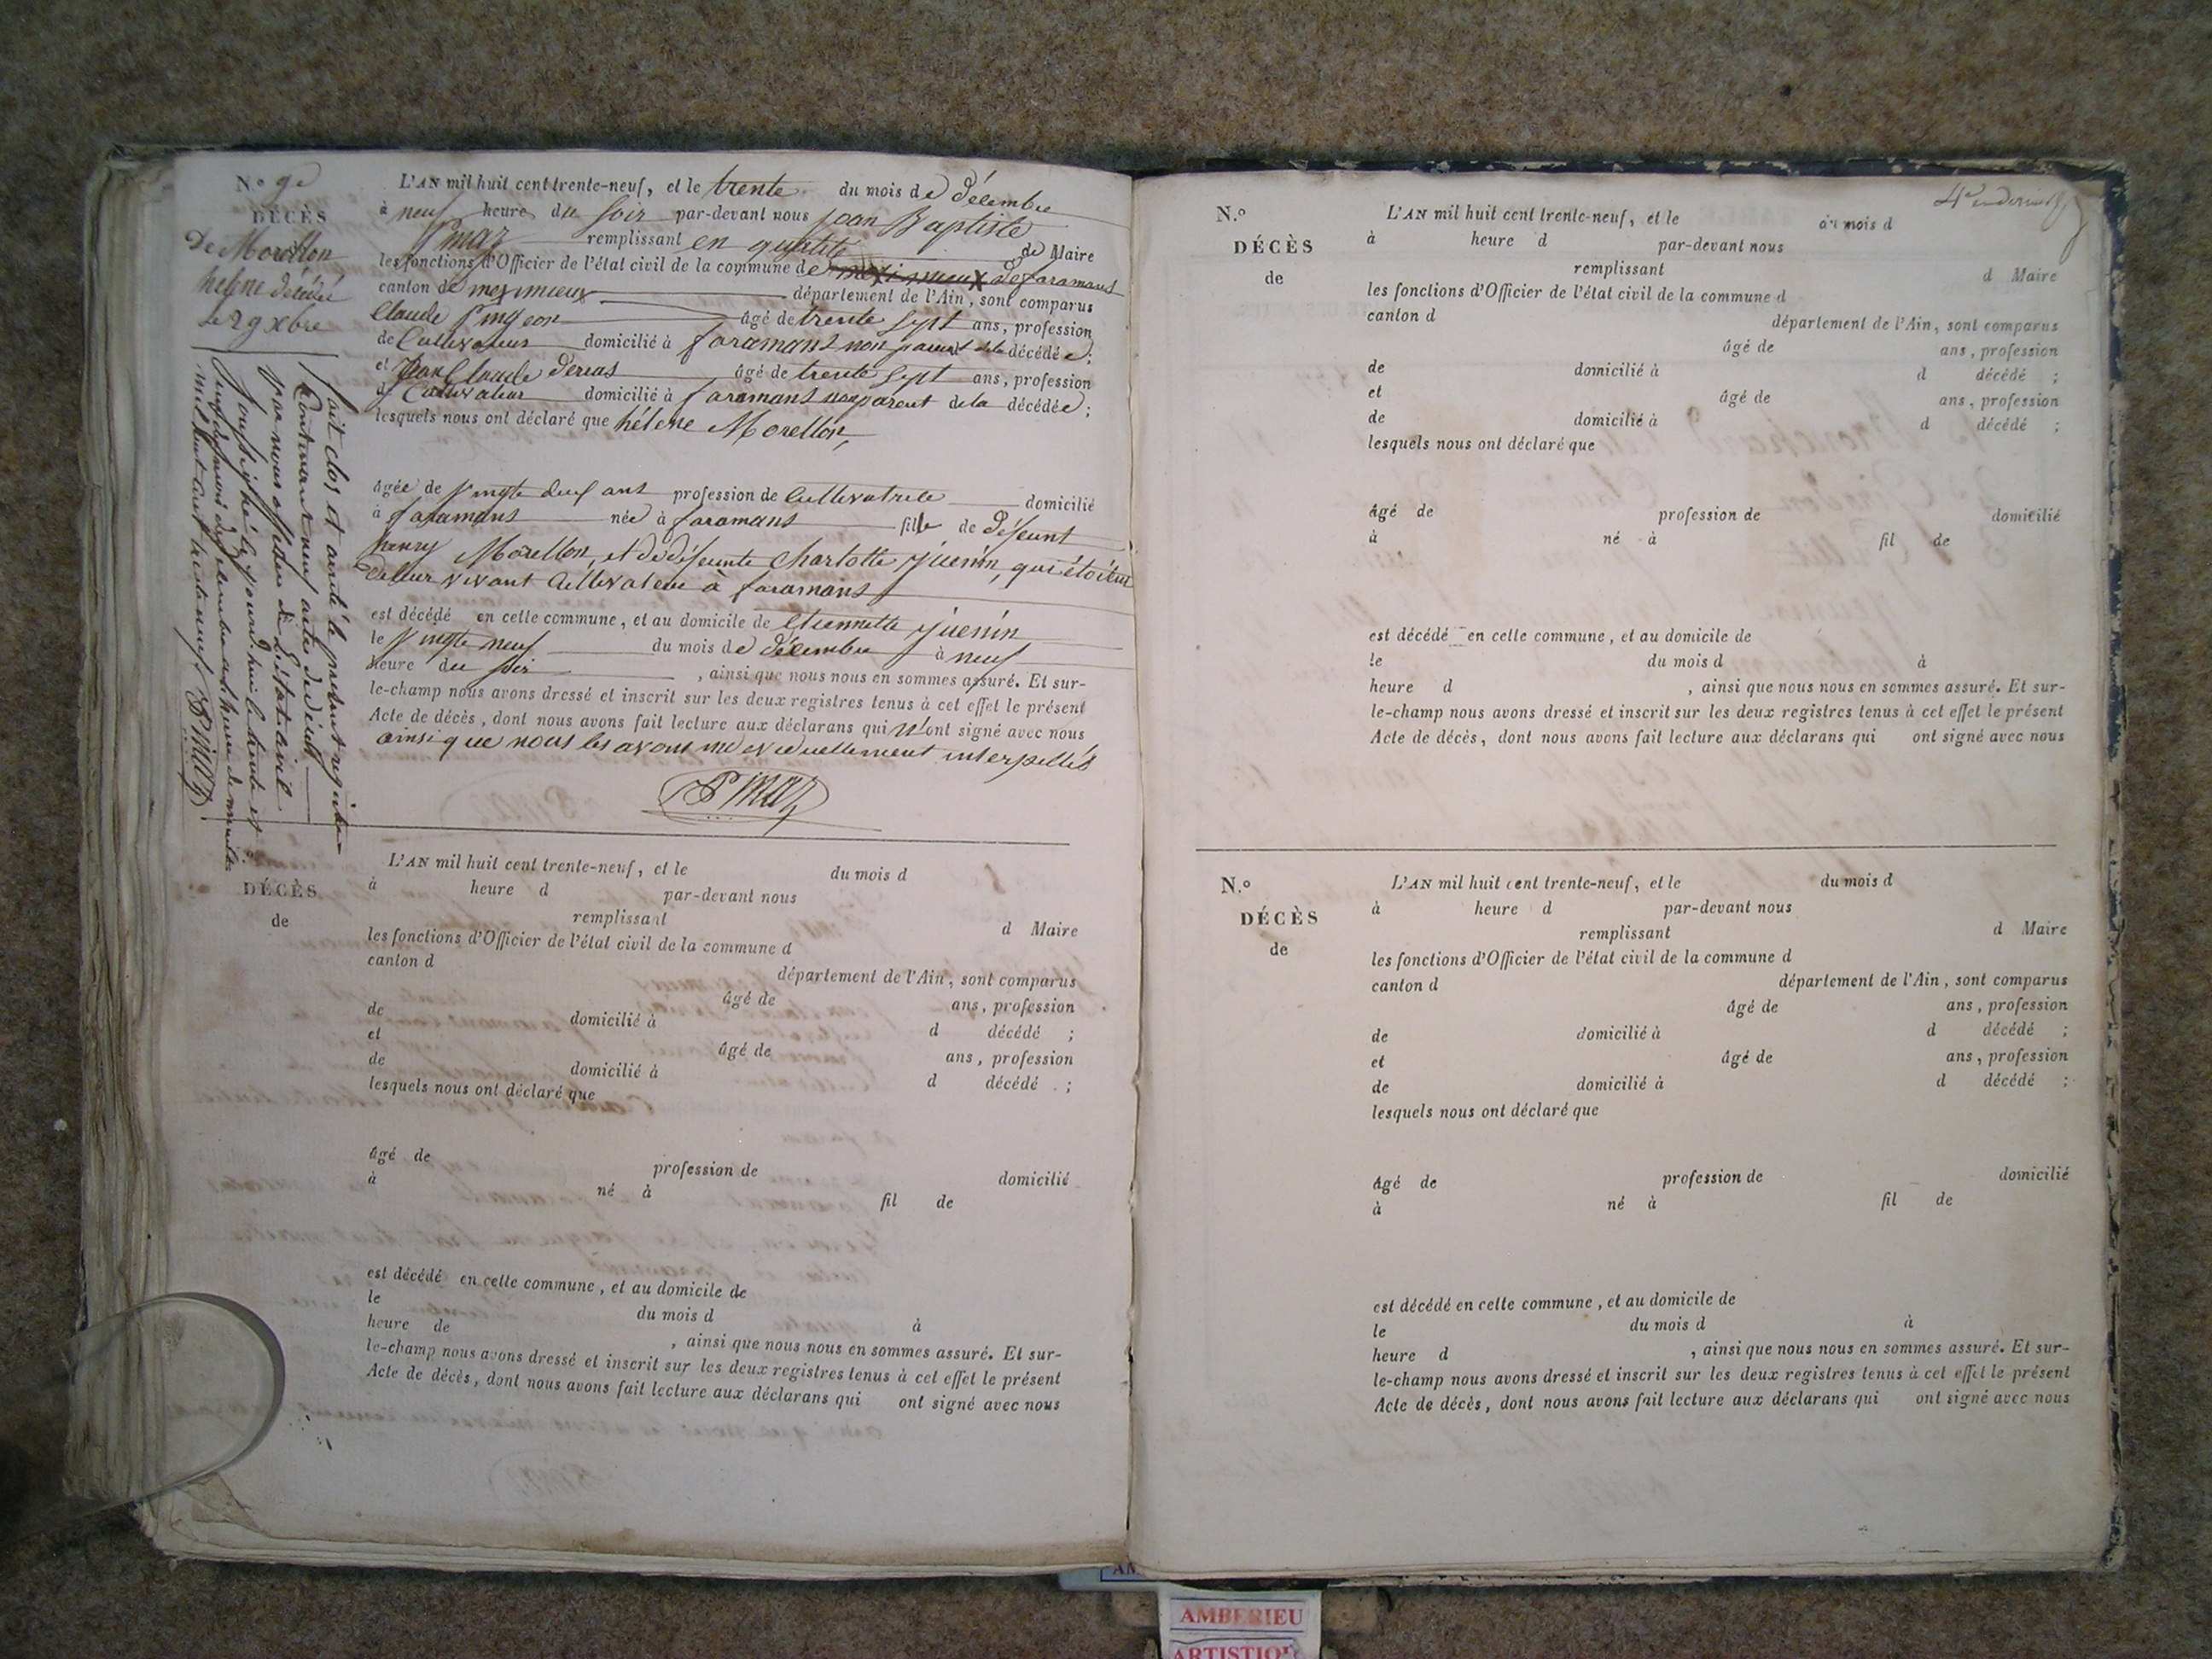 N.o 9e
DÉCÈS
De Morellon
helene décédée
le 29 xbre
L'AN mil huit cent trente-neuf, et le trente du mois de décembre
à neuf heure du soir par-devant nous jean Baptiste
remplissant en qualité de Maire
les fonctions d'Officier de l'état civil de la commune de meximieux de faramans
canton de meximieux département de l'Ain, sont comparus
Claude pingeon âgé de trente sept ans, profession
de Cultivateur domicilié à faramans non parent de la décédée;
et Jean Claude âgé de trente sept ans, profession
d Cultivateur domicilié à faramans non parent de la décédée;
lesquels nous ont déclaré que hélene Morellon,
âgée de vingt deux ans profession de Cultivatrice domicilié
à faramans née à faramans fille de défunt
henry Morellon, et de défeunte Charlotte juenin, qui étoient
de leur vivant Cultivateur à faramans
est décédé en cette commune, et au domicile de Etiennette juenin
le vingt neuf du mois de décembre à neuf
heure du soir , ainsi que nous nous en sommes assuré. Et sur-
le-champ nous avons dressé et inscrit sur les deux registres tenus à cet effet le présent
Acte de décès, dont nous avons fait lecture aux déclarans qui n'ont signé avec nous
ainsi que nous les avons individuellement interpellés
fait clos et arrêté le présent registre
Contenant neuf actes de décès
par nous officier de L'état civil
soussigné cejourd'hui trente et
un du mois de décembre a heure de minuit
mil huit cent trente neuf
N.o
DÉCÈS
de
L'AN mil huit cent trente-neuf, et le du mois d
à heure d par-devant nous
remplissant d Maire
les fonctions d'Officier de l'état civil de la commune d
canton d département de l'Ain, sont comparus
âgé de ans, profession
de domicilié à d décédé ;
et âgé de ans, profession
de domicilié à d décédé ;
lesquels nous ont déclaré que
âgé de profession de domicilié
à né à fil de
est décédé en cette commune, et au domicile de
le du mois d à
heure de , ainsi que nous nous en sommes assuré. Et sur-
le-champ nous avons dressé et inscrit sur les deux registres tenus à cet effet le présent
Acte de décès, dont nous avons fait lecture aux déclarans qui ont signé avec nous
N.o
DÉCÈS
de
L'AN mil huit cent trente-neuf, et le du mois d
à heure d par-devant nous
remplissant d Maire
les fonctions d'Officier de l'état civil de la commune d
canton d département de l'Ain, sont comparus
âgé de ans, profession
de domicilié à d décédé ;
et âgé de ans, profession
de domicilié à d décédé ;
lesquels nous ont déclaré que
âgé de profession de domicilié
à né à fil de
est décédé en cette commune, et au domicile de
le du mois d à
heure d , ainsi que nous nous en sommes assuré. Et sur-
le-champ nous avons dressé et inscrit sur les deux registres tenus à cet effet le présent
Acte de décès, dont nous avons fait lecture aux déclarans qui ont signé avec nous
N.o
DÉCÈS
de
L'AN mil huit cent trente-neuf, et le du mois d
à heure d par-devant nous
remplissant d Maire
les fonctions d'Officier de l'état civil de la commune d
canton d département de l'Ain, sont comparus
âgé de ans, profession
de domicilié à d décédé ;
et âgé de ans, profession
de domicilié à d décédé ;
lesquels nous ont déclaré que
âgé de profession de domicilié
à né à fil de
est décédé en cette commune, et au domicile de
le du mois d à
heure d , ainsi que nous nous en sommes assuré. Et sur-
le-champ nous avons dressé et inscrit sur les deux registres tenus à cet effet le présent
Acte de décès, dont nous avons fait lecture aux déclarans qui ont signé avec nous
AMBERIEU